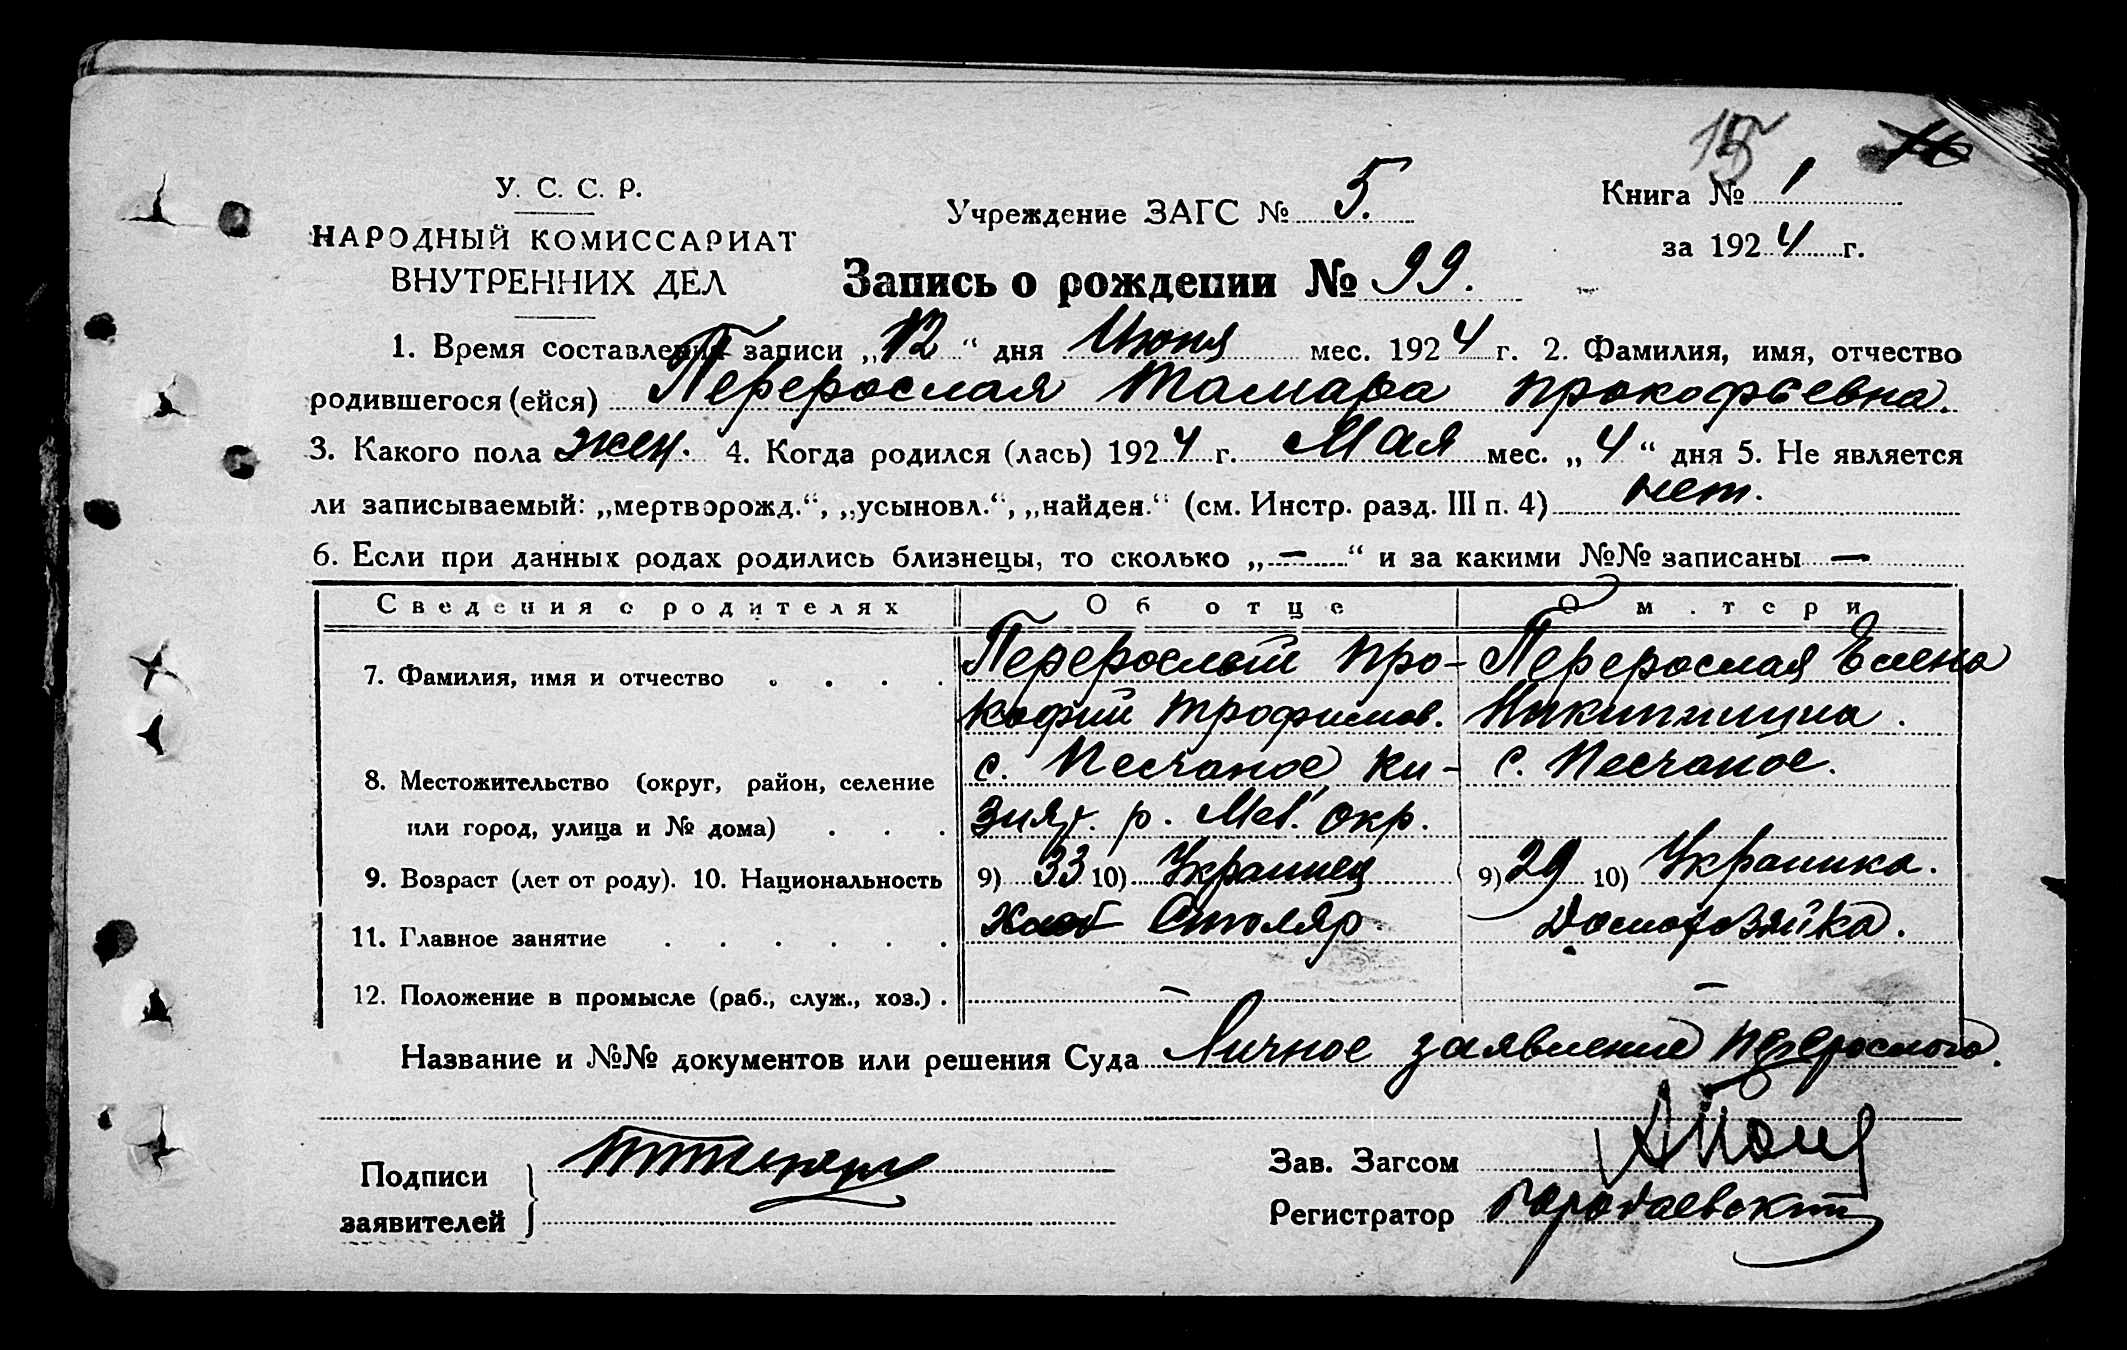 15 16
У. С. С. Р.
НАРОДНЫЙ КОМИССАРИАТ
ВНУТРЕННИХ ДЕЛ
Учреждение ЗАГС № 5.
Книга № 1
за 1924 г.
Запись о рождении № 99.
1. Время составления записи „12“ дня Июня мес. 1924 г. 2. Фамилия, имя, отчество
родившегося (ейся) Перерослая Тамара Прокофьевна.
3. Какого пола жен. 4. Когда родился (лась) 1924 г. Мая мес. „4“ дня 5. Не является
ли записываемый: „мертворожд.“, „усыновл.“, „найден.“ (см. Инстр. разд. III п. 4) нет.
6. Если при данных родах родились близнецы, то сколько „—“ и за какими №№ записаны —
Сведения о родителях Об отце О матери
7. Фамилия, имя и отчество . . . . Перерослый Про- Перерослая Елена
кофий Трофимов. Никитишна.
8. Местожительство (округ, район, селение с. Песчаное Ки- с. Песчаное.
или город, улица и № дома) . . . зияр. р. Мел. окр.
9. Возраст (лет от роду). 10. Национальность 9) 33 10) Украинец 9) 29 10) Украинка.
11. Главное занятие . . . . . . Столяр Домохозяйка.
12. Положение в промысле (раб., служ., хоз.) . — —
Название и №№ документов или решения Суда Личное заявление Перерослого.
Подписи
заявителей
Зав. Загсом
Регистратор